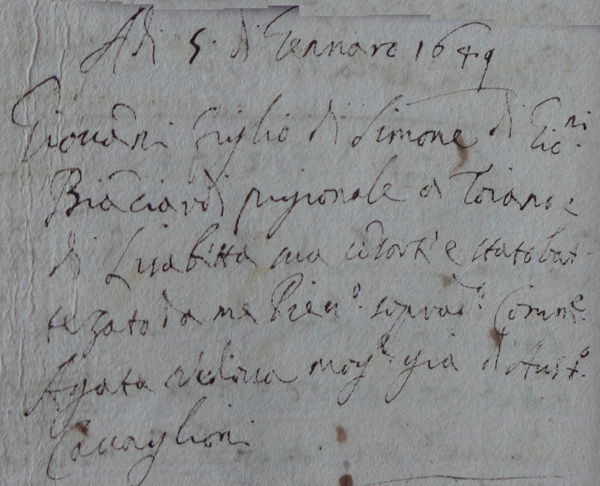 Adi 5. di Gennaro 1649
Giovãni figlio di Simone di Gio:ni
Biãciardi pigionale a Toiano e
di Lisabetta sua cõsorte è stato bat-
tezzato da me Piev.o soprad.o Com.re
Agata vedova mog.e già di